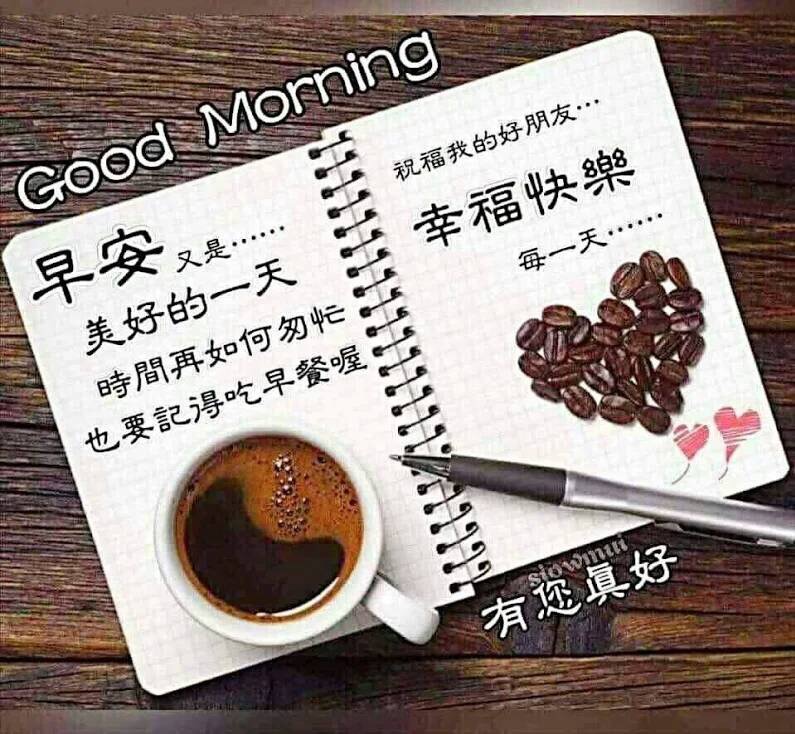 Good Morning
早安 又是……
美好的一天
時間再如何匆忙
也要記得吃早餐喔
祝福我的好朋友…
幸福快樂
每一天……
siowmui
有您真好